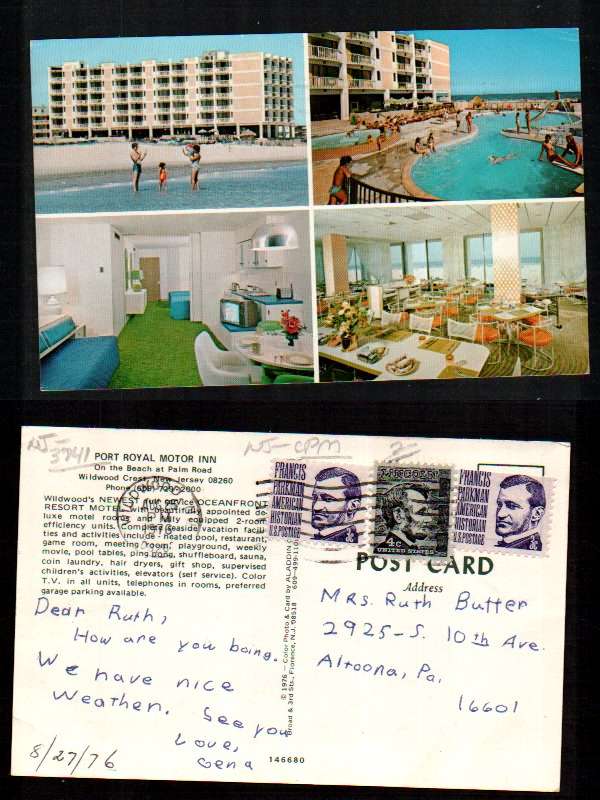 NJ-
3741
NJ-CPM
2-
PORT ROYAL MOTOR INN
On the Beach at Palm Road
Wildwood Crest, New Jersey 08260
Phone (609) 729-2000
Wildwood's NEWEST full service OCEANFRONT
RESORT MOTEL with beautifully appointed de-
luxe motel rooms and fully equipped 2-room
efficiency units. Complete seaside vacation facili-
ties and activities include - heated pool, restaurant,
game room, meeting room, playground, weekly
movie, pool tables, ping pong, shuffleboard, sauna,
coin laundry, hair dryers, gift shop, supervised
children's activities, elevators (self service). Color
T.V. in all units, telephones in rooms, preferred
garage parking available.
Dear Ruth,
How are you boing.
We have nice
weather. See you
Love,
Gena
8/27/76
© 1976 - Color Photo & Card by ALADDIN
Broad & 3rd Sts., Florence, N.J. 08518 609-499-
146680
FRANCIS
PARKMAN
AMERICAN
HISTORIAN
U.S. POSTAGE
3c
LINCOLN
4c
UNITED STATES
FRANCIS
PARKMAN
AMERICAN
HISTORIAN
U.S. POSTAGE
3c
POST CARD
Address
Mrs. Ruth Butter
2925-S. 10th Ave.
Altoona, Pa.
16601